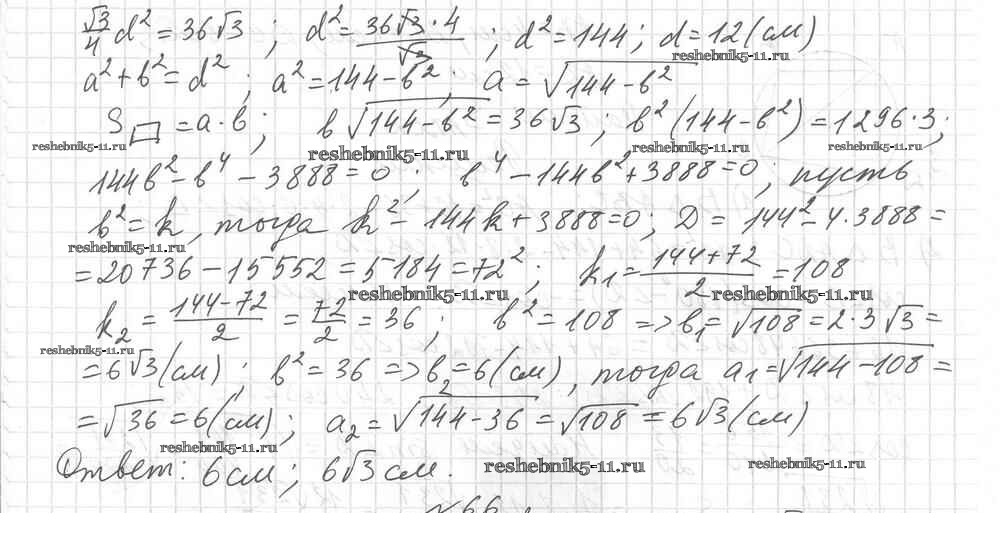 √3/4 d² = 36√3 ; d² = 36√3·4/√3 ; d² = 144 ; d = 12 (см)
reshebnik5-11.ru
a² + b² = d² ; a² = 144 - b² ; a = √(144 - b²)
S▱ = a·b ; b√(144 - b²) = 36√3 ; b²(144 - b²) = 1296·3 ;
reshebnik5-11.ru reshebnik5-11.ru reshebnik5-11.ru reshebnik5-11.ru
144b² - b⁴ - 3888 = 0 ; b⁴ - 144b² + 3888 = 0 ; пусть
b² = k, тогда k² - 144k + 3888 = 0 ; D = 144² - 4·3888 =
reshebnik5-11.ru
= 20736 - 15552 = 5184 = 72² ; k₁ = (144+72)/2 = 108
reshebnik5-11.ru reshebnik5-11.ru
k₂ = (144-72)/2 = 72/2 = 36 ; b² = 108 => b₁ = √108 = 2·3√3 =
reshebnik5-11.ru
= 6√3 (см) ; b² = 36 => b₂ = 6 (см), тогда a₁ = √(144 - 108) =
= √36 = 6 (см) ; a₂ = √(144 - 36) = √108 = 6√3 (см)
reshebnik5-11.ru
Ответ: 6 см ; 6√3 см.
reshebnik5-11.ru reshebnik5-11.ru